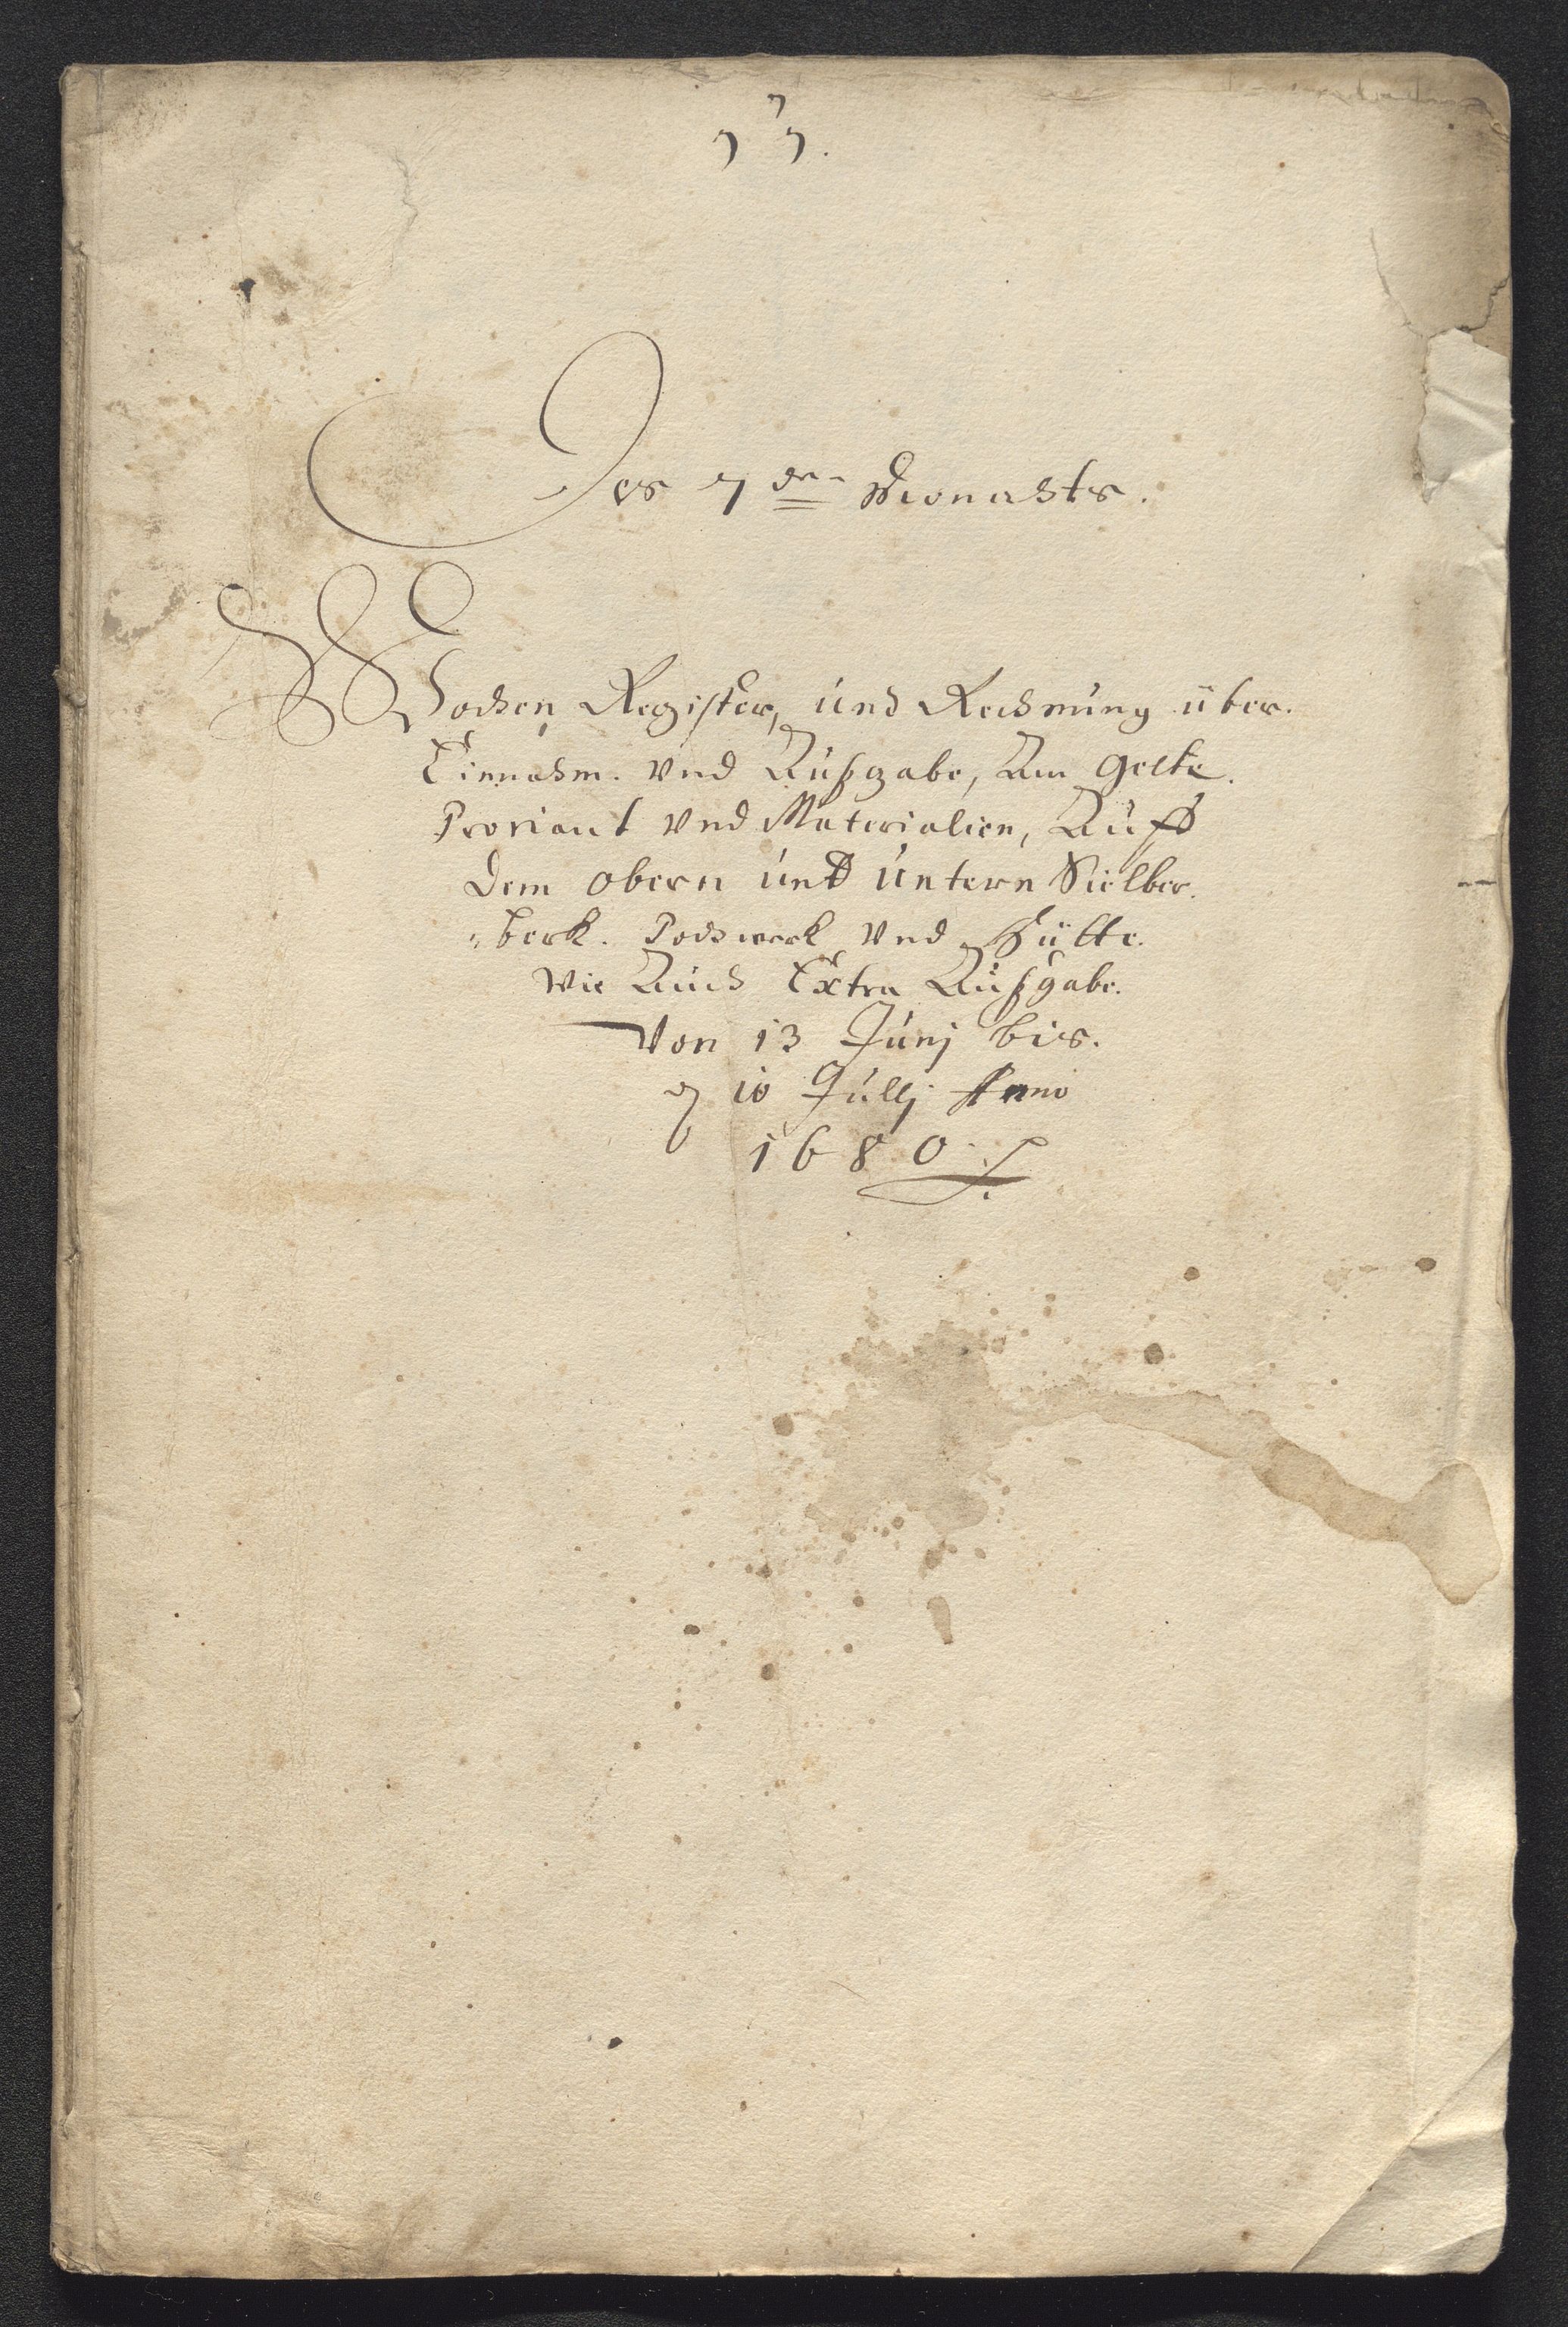 Des 7den Monahts.
Wochen Register, und Rechnung über.
Einnahm. Vnd Außgabe, An Gelte.
Proviant Vnd Materialien, Auff
dem obern unt untern Sielber.
berk. Pochwerk Vnd Hütte.
Wie Auch Extra Außgabe.
Von 13 Junj bis.
10 Jullj Anno
1680.